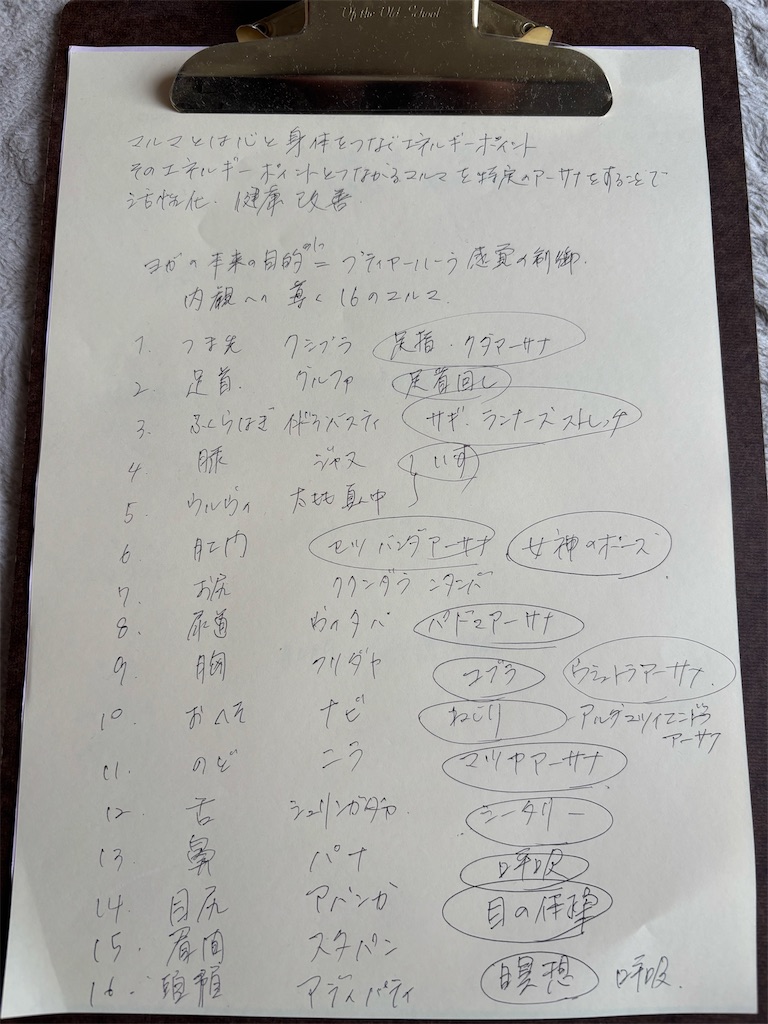 Of the Old School
マルマとは心と身体をつなぐエネルギーポイント
そのエネルギーポイントとつながるマルマを特定のアーサナをすることで
活性化、健康改善
ヨガの本来の目的の1つ = プティヤーハーラ 感覚の制御、
内観への導く16のマルマ
1. つま先 クシプラ 足指・クダアーサナ
2. 足首 グルファ 足首回し
3. ふくらはぎ インドラバスティ サギ・ランナーズストレッチ
4. 膝 ジャヌ いす
5. ウルヴィ 太もも真ん中
6 肛門 セツバンダアーサナ 女神のポーズ
7. お尻 ククンダラ ニタンバ
8. 尿道 ヴィタパ パドマアーサナ
9 胸 フリダヤ コブラ ウシュトラアーサナ
10. おへそ ナビ ねじり アルダマツィエンドラ
アーサナ
11. のど ニラ マツヤアーサナ
12. 舌 シュリンガダカ シータリー
13 鼻 パナ 呼吸
14. 目尻 アパンガ 目の体操
15. 眉間 スタパン
16. 頭頂 アディパティ 瞑想 呼吸